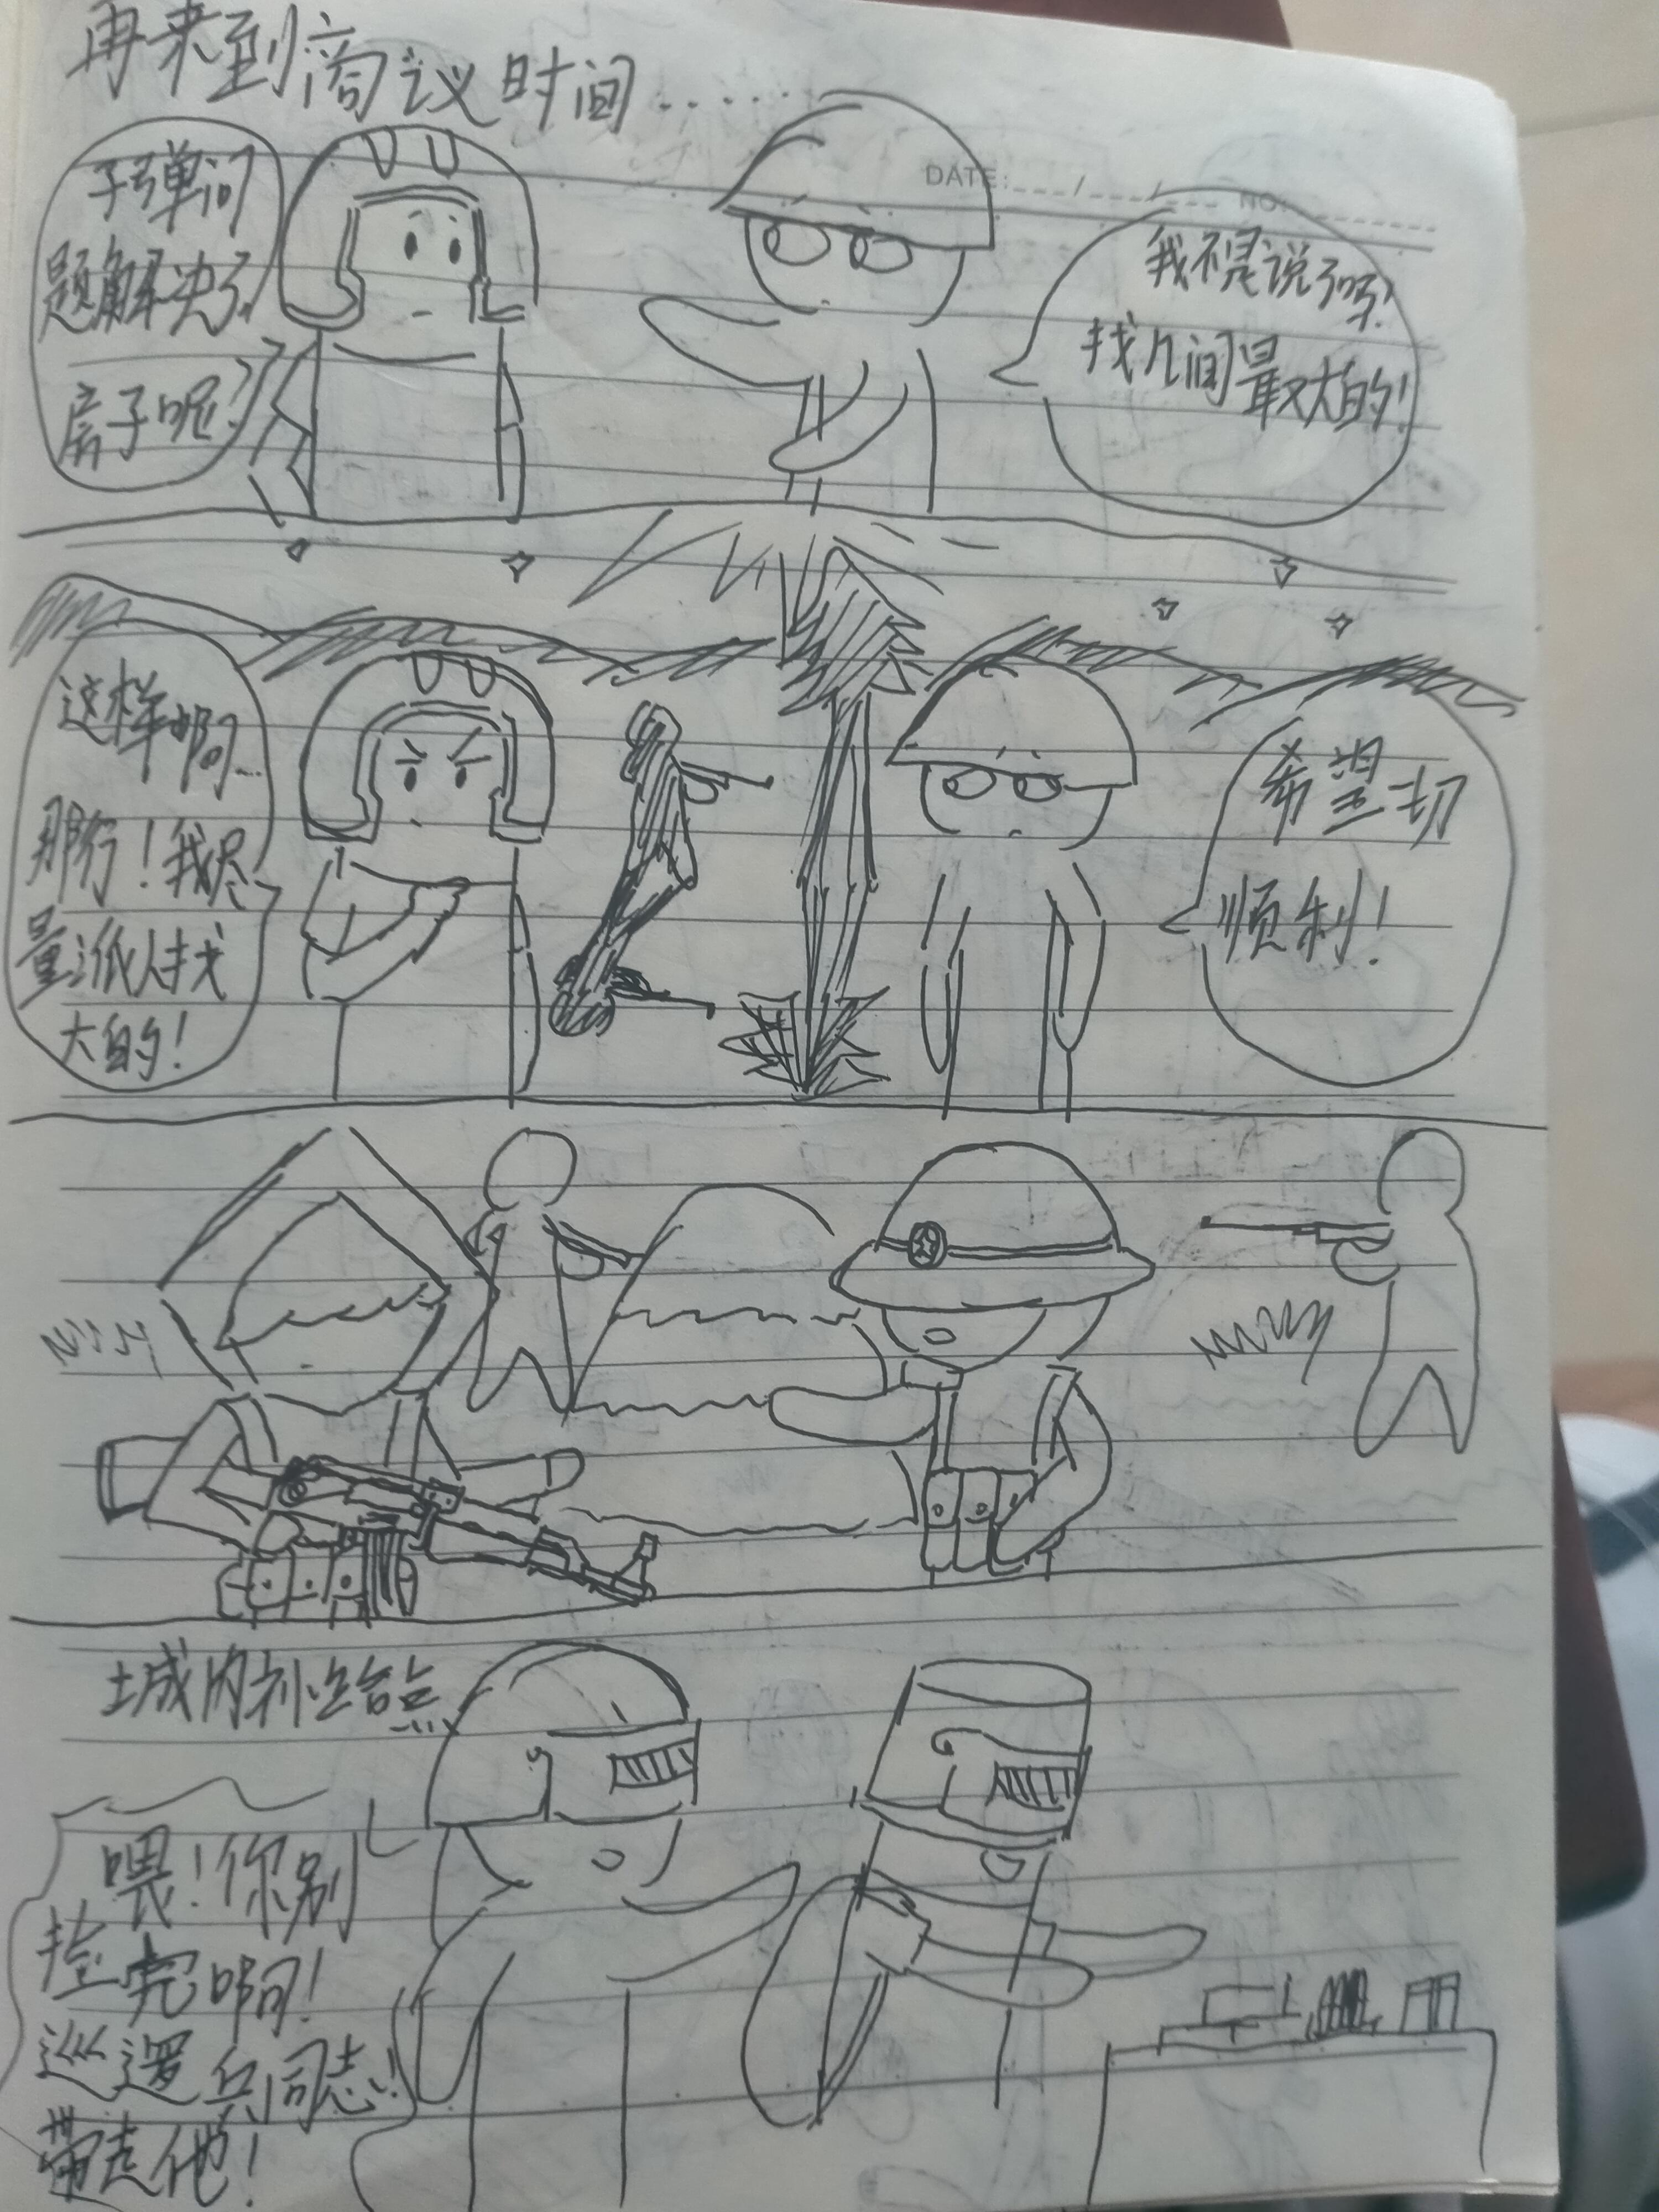 再来到商议时间......
DATE: NO:
子弹问
题解决了
房子呢?
我不是说了吗?
找几间最大的!
这样啊...
那行!我尽
量派人找
大的!
希望一切
顺利!
土城内补给点
喂!你别
拿完啊!
巡逻兵同志!
带走他!